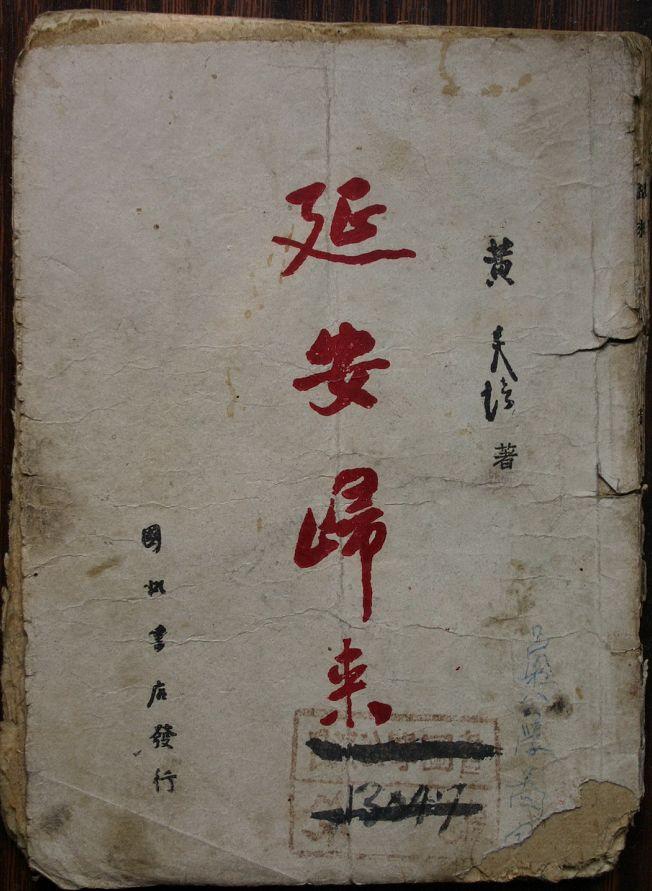 黃炎培著
延安歸来
國訊書店發行